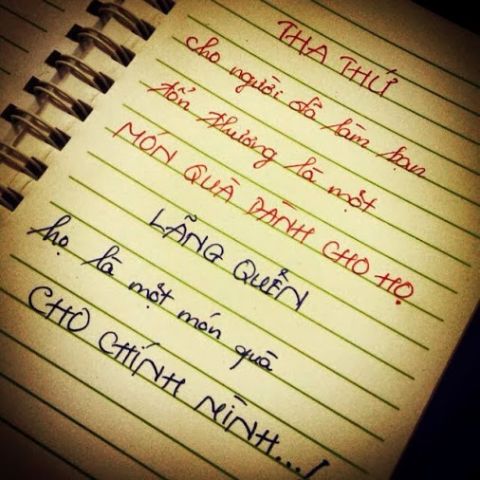 THA THỨ
cho người đã làm bạn
tổn thương là một
MÓN QUÀ DÀNH CHO HỌ
LÃNG QUÊN
họ là một món quà
CHO CHÍNH MÌNH.../